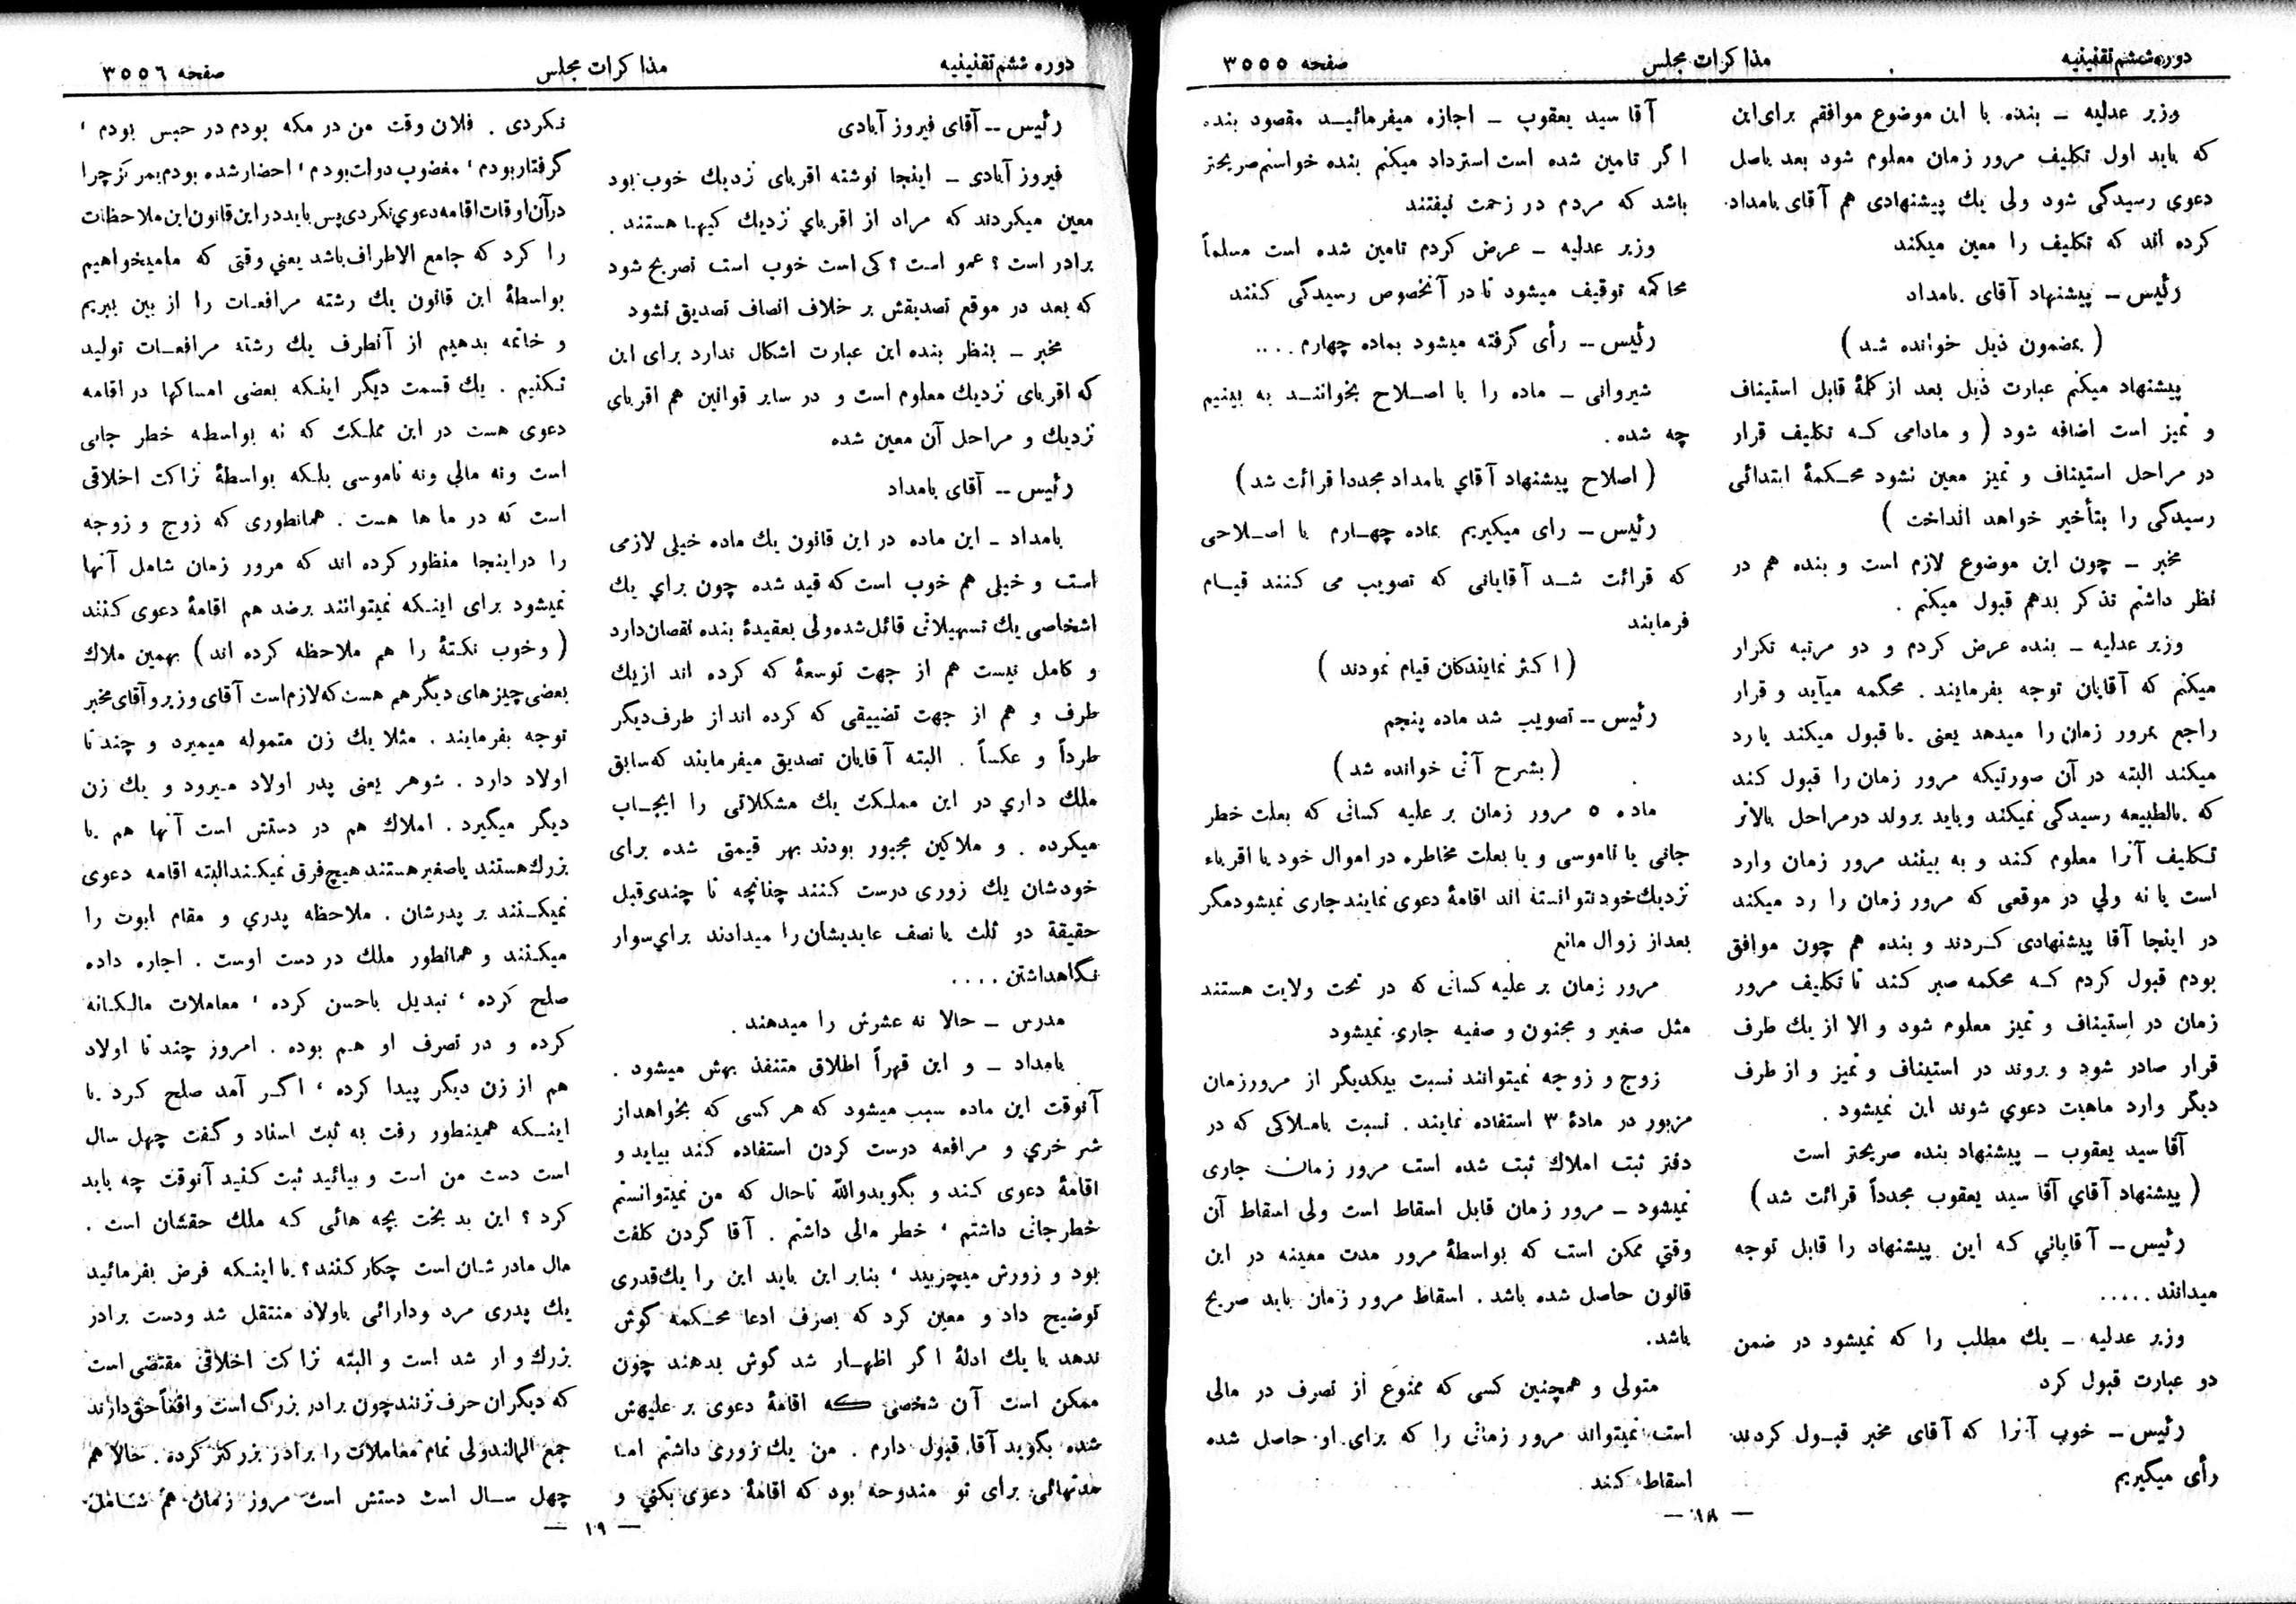 دوره ششم تقنینیه
مذاکرات مجلس
صفحه ۳۵۵۵
وزیر عدلیه ــ بنده با این موضوع موافقم برای این
که باید اول تکلیف مرور زمان معلوم شود بعد باصل
دعوی رسیدگی شود ولی یك پیشنهادی هم آقای بامداد
کرده اند که تکلیف را معین میکند
رئیس ــ پیشنهاد آقای بامداد
( بمضمون ذیل خوانده شد )
پیشنهاد میکنم عبارت ذیل بعد از کلمهٔ قابل استیناف
و تمیز است اضافه شود ( و مادامی که تکلیف قرار
در مراحل استیناف و تمیز معین نشود محکمهٔ ابتدائی
رسیدگی را بتأخیر خواهد انداخت )
مخبر ــ چون این موضوع لازم است و بنده هم در
نظر داشتم تذکر بدهم قبول میکنم .
وزیر عدلیه ــ بنده عرض کردم و دو مرتبه تکرار
میکنم که آقایان توجه بفرمایند . محکمه میآید و قرار
راجع بمرور زمان را میدهد یعنی یا قبول میکند یا رد
میکند البته در آن صورتیکه مرور زمان را قبول کند
که بالطبیعه رسیدگی نمیکند و باید برولد درمراحل بالاتر
تکلیف آنرا معلوم کند و به بینند مرور زمان وارد
است یا نه ولي در موقعی که مرور زمان را رد میکند
در اینجا آقا پیشنهادی کردند و بنده هم چون موافق
بودم قبول کردم که محکمه صبر کند تا تکلیف مرور
زمان در استیناف و تمیز معلوم شود و الا از یك طرف
قرار صادر شود و بروند در استیناف و تمیز و از طرف
دیگر وارد ماهیت دعوي شوند این نمیشود .
آقا سید یعقوب ــ پیشنهاد بنده صریحتر است
( پیشنهاد آقاي آقا سید یعقوب مجدداً قرائت شد )
رئیس ــ آقایاني که این پیشنهاد را قابل توجه
میدانند .....
وزیر عدلیه ــ یك مطلب را که نمیشود در ضمن
دو عبارت قبول کرد
رئیس ــ خوب آنرا که آقای مخبر قبول کردند
رأی میگیریم
آقا سید یعقوب ــ اجازه میفرمائید مقصود بنده
اگر تامین شده است استرداد میکنم بنده خواستم صریحتر
باشد که مردم در زحمت نیفتند
وزیر عدلیه ــ عرض کردم تامین شده است مسلماً
محاکمه توقیف میشود تا در آنخصوص رسیدگی کنند
رئیس ــ رأی گرفته میشود بماده چهارم ....
شیروانی ــ ماده را با اصلاح بخوانند به بینیم
چه شده .
( اصلاح پیشنهاد آقاي بامداد مجددا قرائت شد )
رئیس ــ رای میگیریم بماده چهارم با اصلاحی
که قرائت شد آقایانی که تصویب می کنند قیام
فرمایند
( اکثر نمایندگان قیام نمودند )
رئیس ــ تصویب شد ماده پنجم
( بشرح آتی خوانده شد )
ماده ۵ مرور زمان بر علیه کسانی که بعلت خطر
جانی یا ناموسی و یا بعلت مخاطره در اموال خود یا اقرباء
نزدیك خود نتوانسته اند اقامهٔ دعوی نمایند جاری نمیشود مگر
بعداز زوال مانع
مرور زمان بر علیه کسانی که در تحت ولایت هستند
مثل صغیر و مجنون و صفیه جاری نمیشود
زوج و زوجه نمیتوانند نسبت بیکدیگر از مرورزمان
مزبور در مادهٔ ۳ استفاده نمایند . نسبت باملاکی که در
دفتر ثبت املاك ثبت شده است مرور زمان جاری
نمیشود ــ مرور زمان قابل اسقاط است ولی اسقاط آن
وقتي ممکن است که بواسطهٔ مرور مدت معینه در این
قانون حاصل شده باشد . اسقاط مرور زمان باید صریح
باشد.
متولی و همچنین کسی که ممنوع از تصرف در مالی
است نمیتواند مرور زمانی را که برای او حاصل شده
اسقاط کند
ــ ۱۸ ــ
دوره ششم تقنینیه
مذاکرات مجلس
صفحه ۳۵۵٦
رئیس ــ آقای فیروز آبادی
فیروز آبادی ــ اینجا نوشته اقربای نزدیك خوب بود
معین میکردند که مراد از اقرباي نزدیك کیها هستند .
برادر است ؟ عمو است ؟ کی است خوب است تصریح شود
که بعد در موقع تصدیقش بر خلاف انصاف تصدیق نشود
مخبر ــ بنظر بنده این عبارت اشکال ندارد برای این
که اقربای نزدیك معلوم است و در سایر قوانین هم اقربای
نزدیك و مراحل آن معین شده
رئیس ــ آقای بامداد
بامداد ــ این ماده در این قانون یك ماده خیلی لازمی
است و خیلی هم خوب است که قید شده چون براي یك
اشخاصی یك تسهیلاتی قائل شده ولی بعقیدهٔ بنده نقصان دارد
و کامل نیست هم از جهت توسعهٔ که کرده اند ازیك
طرف و هم از جهت تضییقی که کرده اند از طرف دیگر
طرداً و عکساً . البته آقایان تصدیق میفرمایند که سابق
ملك داري در این مملکت یك مشکلاتی را ایجاب
میکرده . و ملاکین مجبور بودند بهر قیمتی شده برای
خودشان یك زوری درست کنند چنانچه تا چندی قبل
حقیقة دو ثلث یا نصف عایدیشان را میدادند براي سوار
نگاهداشتن ....
مدرس ــ حالا نه عشرش را میدهند .
بامداد ــ و این قهراً اطلاق متنفذ بهش میشود .
آنوقت این ماده سبب میشود که هر کسی که بخواهد از
شر خري و مرافعه درست کردن استفاده کند بیاید و
اقامهٔ دعوی کند و بگوید والله تاحال که من نمیتوانستم
خطر جانی داشتم ، خطر مالی داشتم . آقا گردن کلفت
بود و زورش میچربید ، بنابر این باید این را یك قدری
توضیح داد و معین کرد که بصرف ادعا محکمه گوش
ندهد با یك ادلهٔ اگر اظهار شد گوش بدهند چون
ممکن است آن شخصی که اقامهٔ دعوی بر علیهش
شده بگوید آقا قبول دارم . من یك زوری داشتم اما
مدتهائی برای تو مندوحه بود که اقامهٔ دعوی بکني و
نکردی . فلان وقت من در مکه بودم در حبس بودم ،
گرفتار بودم ، مغضوب دولت بودم ، احضار شده بودم بمرکز چرا
درآن اوقات اقامه دعوي نکردی پس باید در این قانون این ملاحظات
را کرد که جامع الاطراف باشد یعني وقتی که مامیخواهیم
بواسطهٔ این قانون یك رشته مرافعات را از بین ببریم
و خاتمه بدهیم از آنطرف یك رشته مرافعات تولید
نکنیم . یك قسمت دیگر اینکه بعضی امساکها در اقامه
دعوی هست در این مملکت که نه بواسطه خطر جانی
است ونه مالی ونه ناموسی بلکه بواسطهٔ نزاکت اخلاقی
است که در ما ها هست . همانطوری که زوج و زوجه
را دراینجا منظور کرده اند که مرور زمان شامل آنها
نمیشود برای اینکه نمیتوانند برضد هم اقامهٔ دعوی کنند
( وخوب نکتهٔ را هم ملاحظه کرده اند ) بهمین ملاك
بعضی چیزهای دیگر هم هست که لازم است آقای وزیر و آقای مخبر
توجه بفرمایند . مثلا یك زن متموله میمیرد و چند تا
اولاد دارد . شوهر یعنی پدر اولاد میرود و یك زن
دیگر میگیرد . املاك هم در دستش است آنها هم یا
بزرك هستند یا صغیر هستند هیچ فرق نمیکند البته اقامه دعوی
نمیکنند بر پدرشان . ملاحظه پدري و مقام ابوت را
میکنند و همانطور ملك در دست اوست . اجاره داده
صلح کرده ، تبدیل باحسن کرده ، معاملات مالکانه
کرده و در تصرف او هم بوده . امروز چند تا اولاد
هم از زن دیگر پیدا کرده ، اگر آمد صلح کرد یا
اینکه همینطور رفت به ثبت اسناد و گفت چهل سال
است دست من است و بیائید ثبت کنید آنوقت چه باید
کرد ؟ این بد بخت بچه هائی که ملك حقشان است .
مال مادر شان است چکار کنند ؟ یا اینکه فرض بفرمائید
یك پدری مرد ودارائی باولاد منتقل شد ودست برادر
بزرك و ار شد است و البته نزاکت اخلاقی مقتضی است
که دیگران حرف نزنند چون برادر بزرگ است واقعاً حق دارند
جمع المالند ولی تمام معاملات را برادر بزرگتر کرده . حالا هم
چهل سال است دستش است مرور زمان هم شامل
ــ ۱۹ ــ